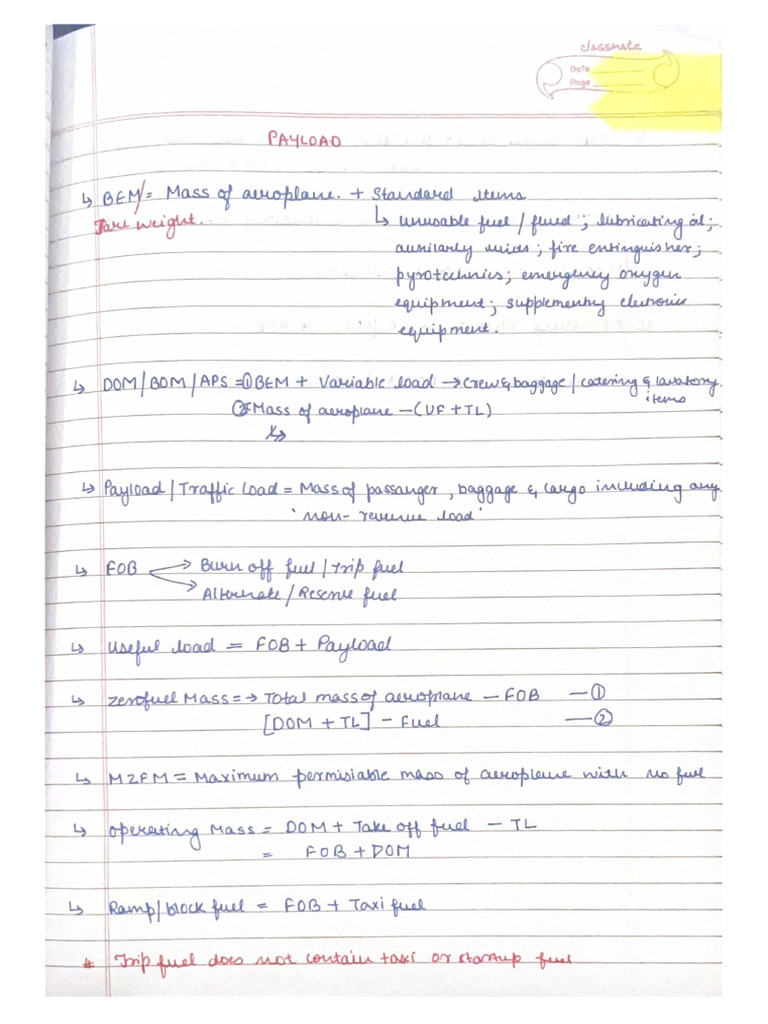 classmate
Date
Page
PAYLOAD
↳ BEM/= Mass of aeroplane. + Standard items
Tare weight.
↳ unusable fuel / flued ; lubricating oil;
auxilarly uids ; fire extinguisher;
pyrotechnics; emergency oxygen
equipment; supplementry electronic
equipment.
↳ DOM/BOM/APS =① BEM + Variable load → Crew & baggage / catering & lavatory
items
②= Mass of aeroplane - (UF + TL)
↳ Payload / Traffic load = Mass of passanger, baggage & cargo including any
'non-revenue load'
↳ FOB → Burn off fuel / Trip fuel
→ Alternate / Reserve fuel
↳ Useful load = FOB + Payload
↳ zerofuel Mass = → Total mass of aeroplane - FOB — ①
[DOM + TL] - Fuel — ②
↳ MZFM = Maximum permisiable mass of aeroplane with no fuel
↳ Operating Mass = DOM + Take off fuel - TL
= FOB + DOM
↳ Ramp/block fuel = FOB + Taxi fuel
# Trip fuel does not contain taxi or startup fuel